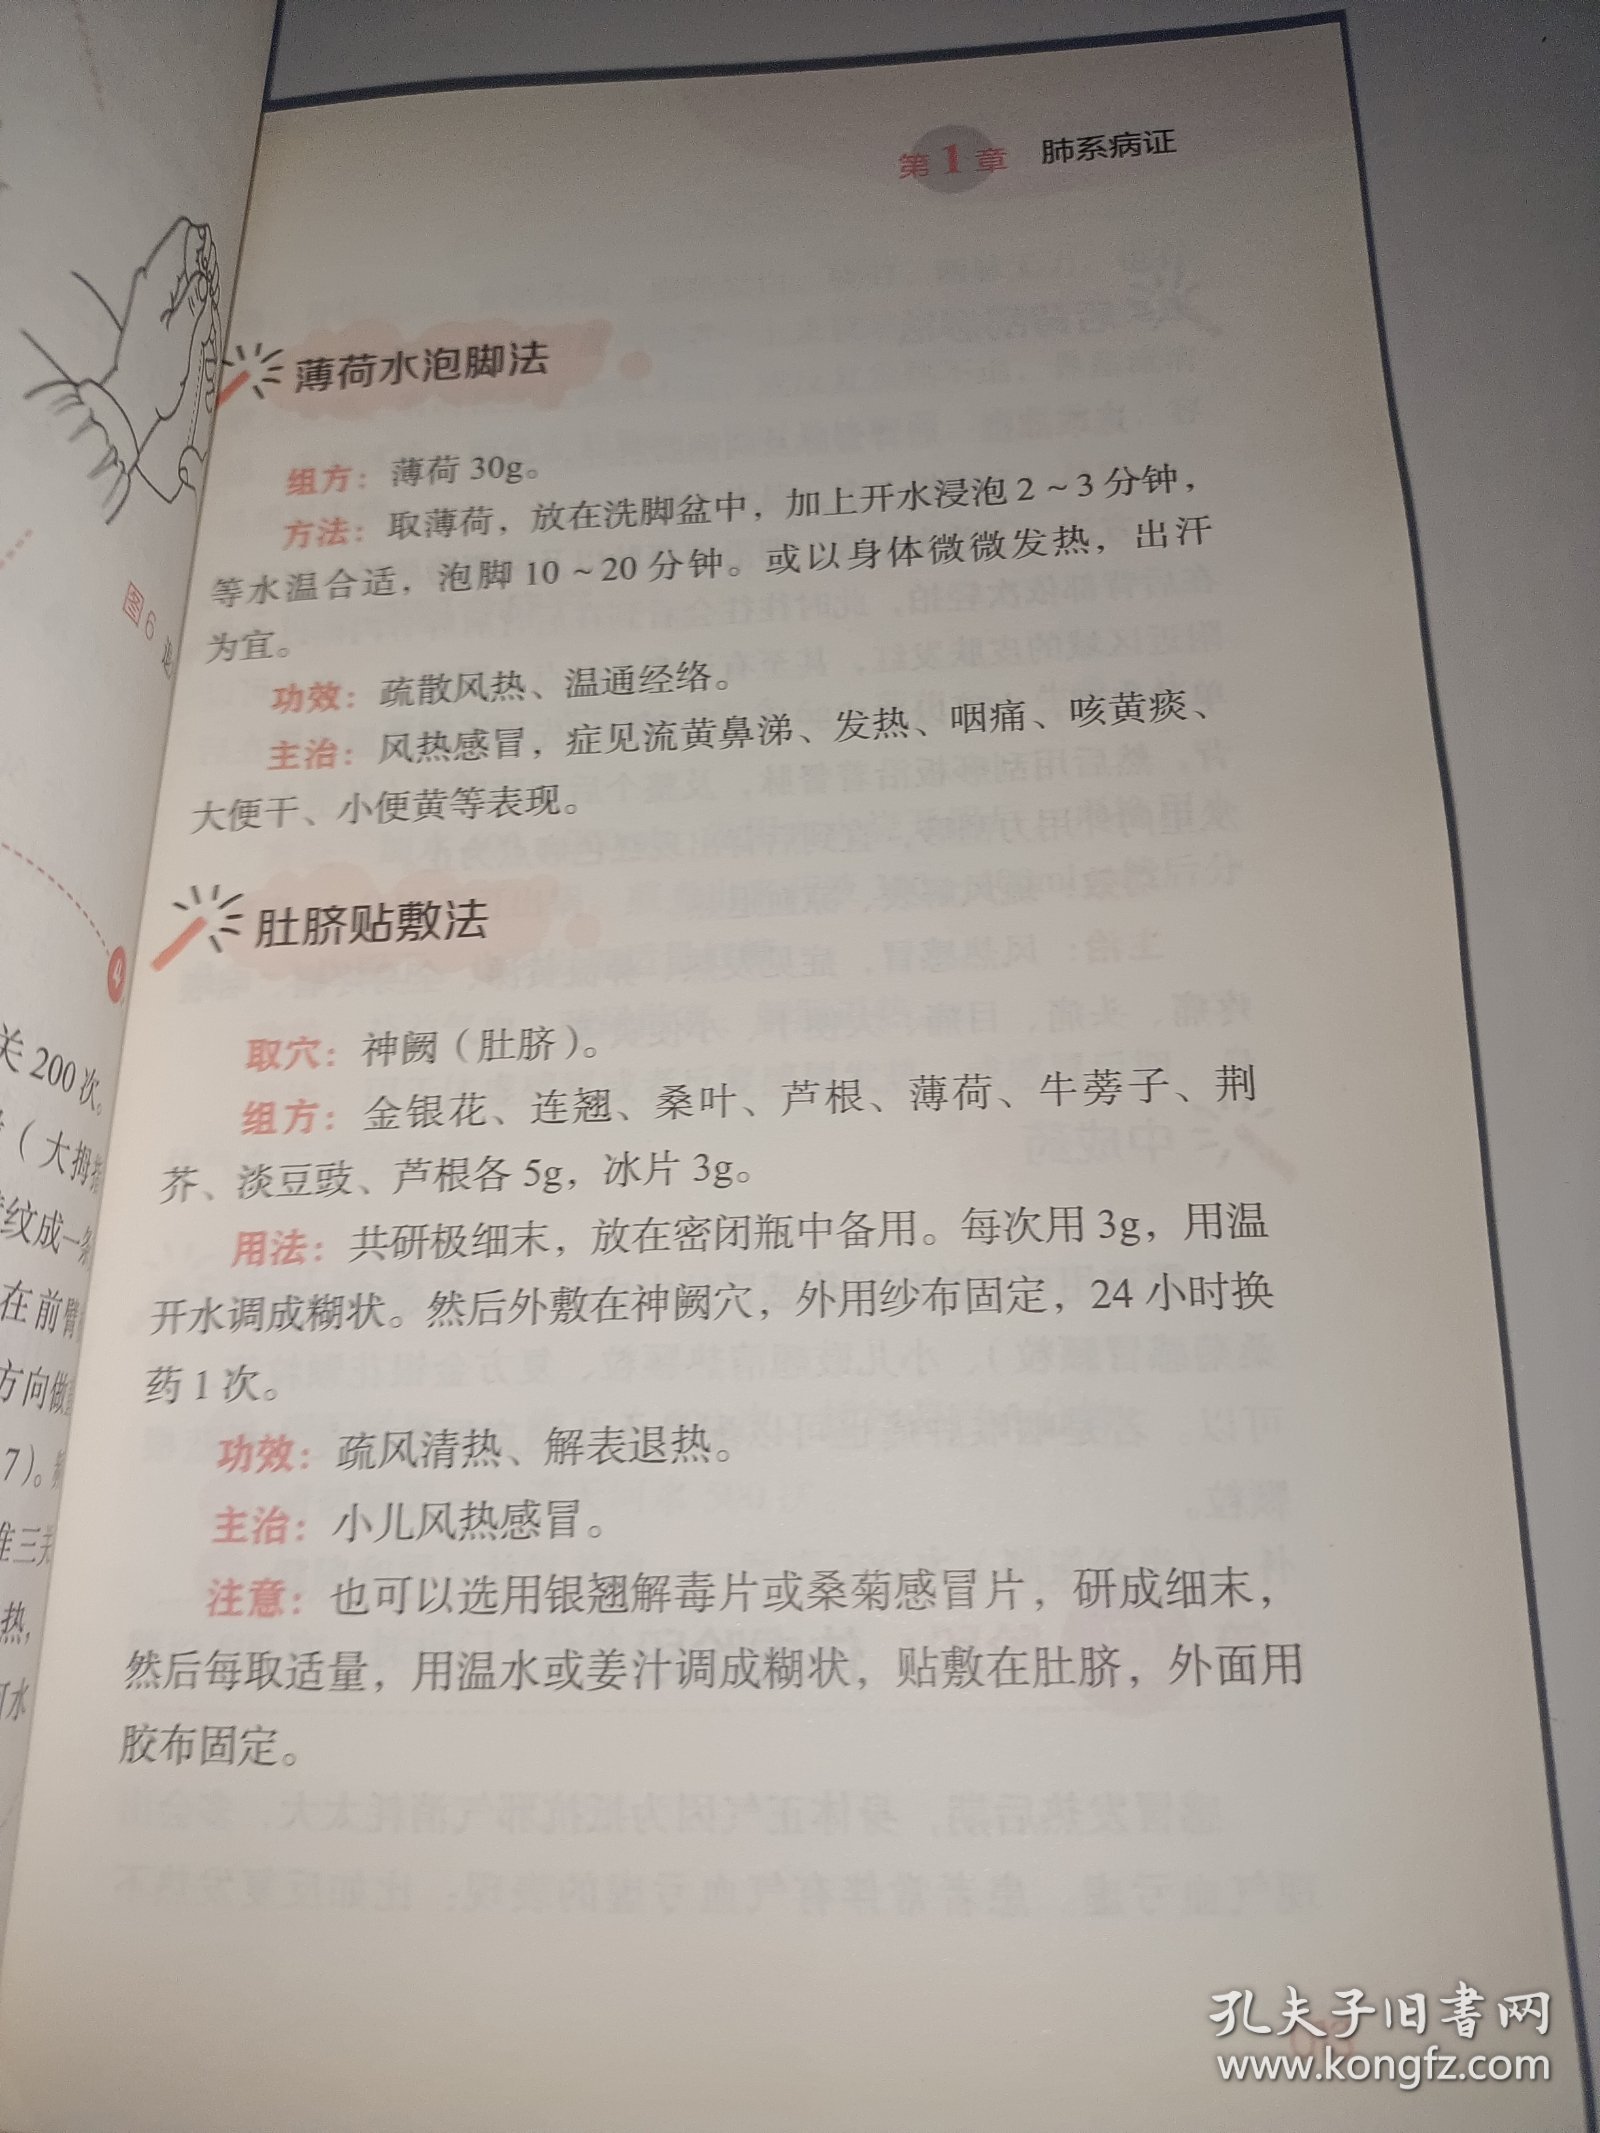 第1章 肺系病证
薄荷水泡脚法
组方：薄荷 30g。
方法：取薄荷，放在洗脚盆中，加上开水浸泡 2～3 分钟，
等水温合适，泡脚 10～20 分钟。或以身体微微发热，出汗
为宜。
功效：疏散风热、温通经络。
主治：风热感冒，症见流黄鼻涕、发热、咽痛、咳黄痰、
大便干、小便黄等表现。
肚脐贴敷法
取穴：神阙（肚脐）。
组方：金银花、连翘、桑叶、芦根、薄荷、牛蒡子、荆
芥、淡豆豉、芦根各 5g，冰片 3g。
用法：共研极细末，放在密闭瓶中备用。每次用 3g，用温
开水调成糊状。然后外敷在神阙穴，外用纱布固定，24 小时换
药 1 次。
功效：疏风清热、解表退热。
主治：小儿风热感冒。
注意：也可以选用银翘解毒片或桑菊感冒片，研成细末，
然后每取适量，用温水或姜汁调成糊状，贴敷在肚脐，外面用
胶布固定。
图6
4
关 200 次。
（大拇指
纹成一条
在前臂
方向做
7）。
推三关
热，
水
孔夫子旧书网
www.kongfz.com